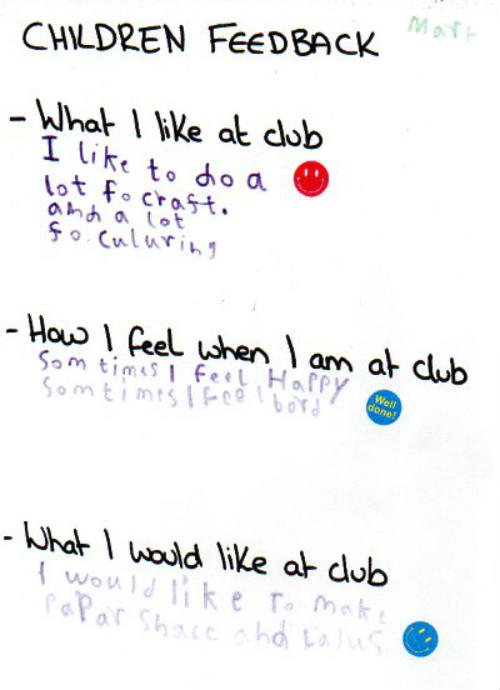 Mart
CHILDREN FEEDBACK
- What I like at club
I like to do a
lot fo craft.
and a lot
fo. culuring
- How I feel when I am at club
Som times I feel Happy
somtimes I feel bord
Well
done!
- What I would like at club
I would like To make
PaPar shacc and